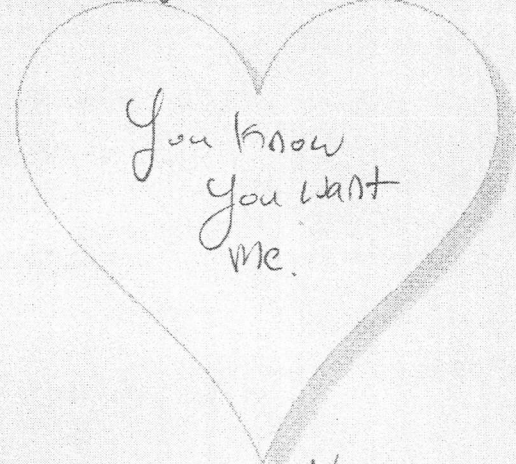 You know
you want
me.